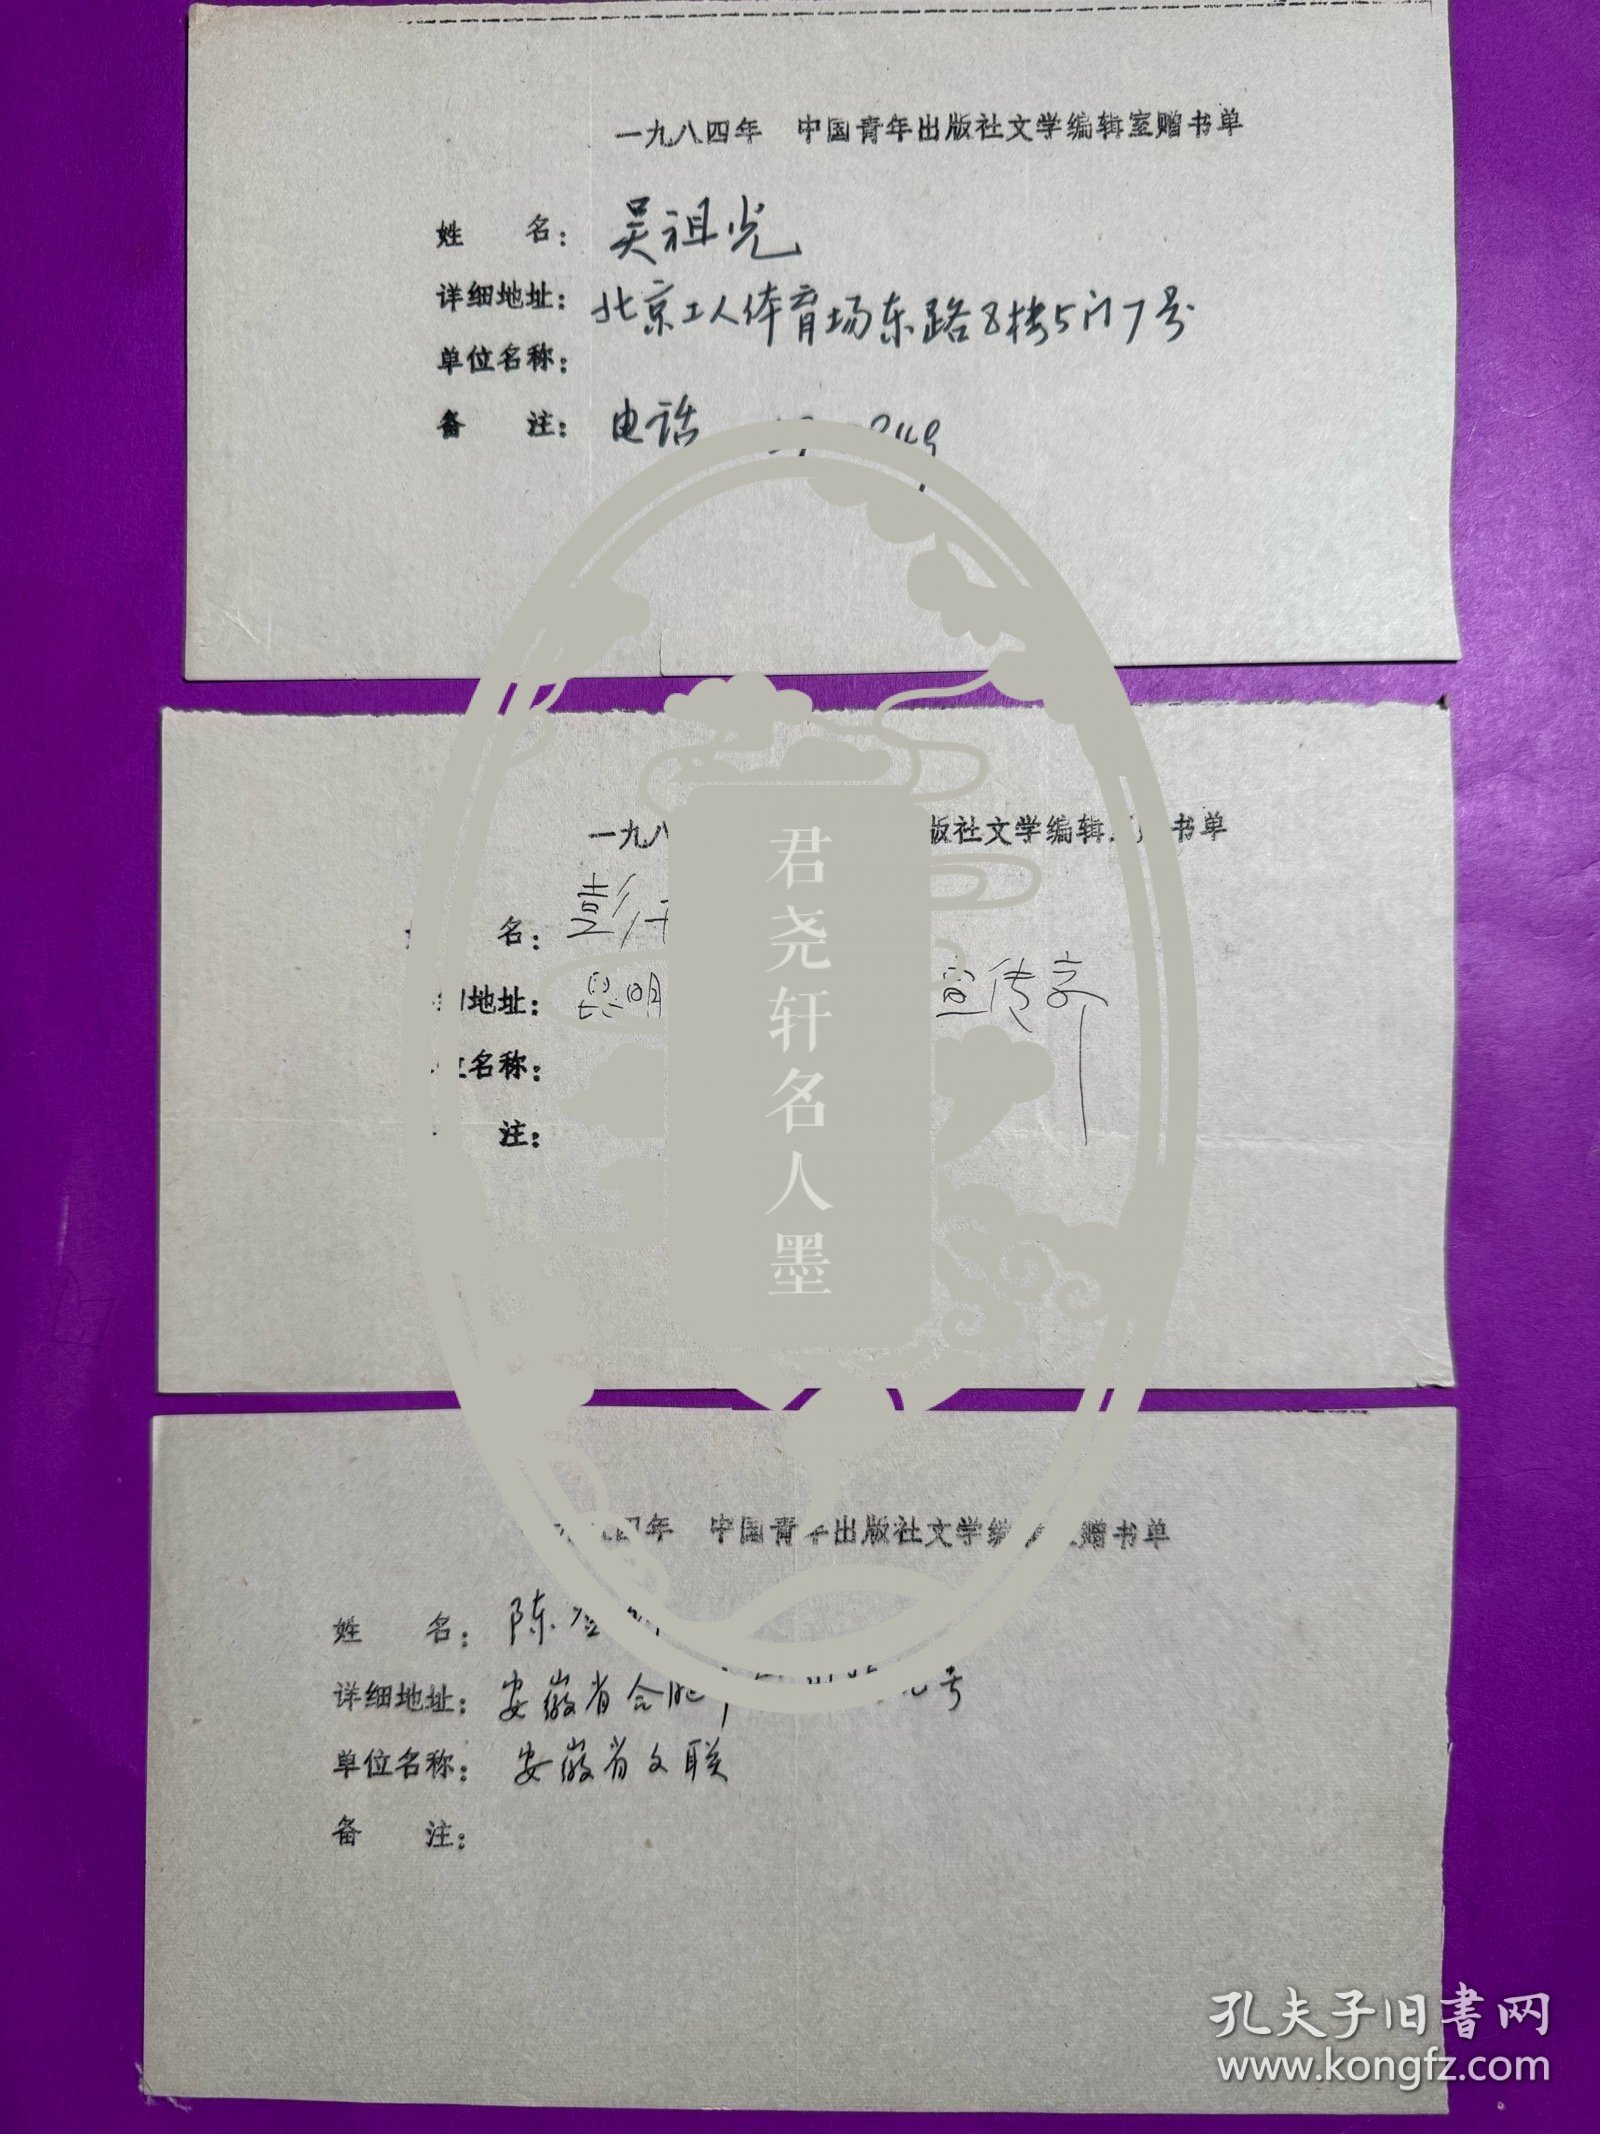 一九八四年　中国青年出版社文学编辑室赠书单
姓　名：吴祖光
详细地址：北京工人体育场东路8楼5门7号
单位名称：
备　注：电话
一九八 版社文学编辑 书单
名：彭
地址：昆明 宣传部
名称：
注：
四年　中国青年出版社文学编 赠书单
姓　名：陈
详细地址：安徽省合肥 号
单位名称：安徽省文联
备　注：
君尧轩名人墨
孔夫子旧书网
www.kongfz.com